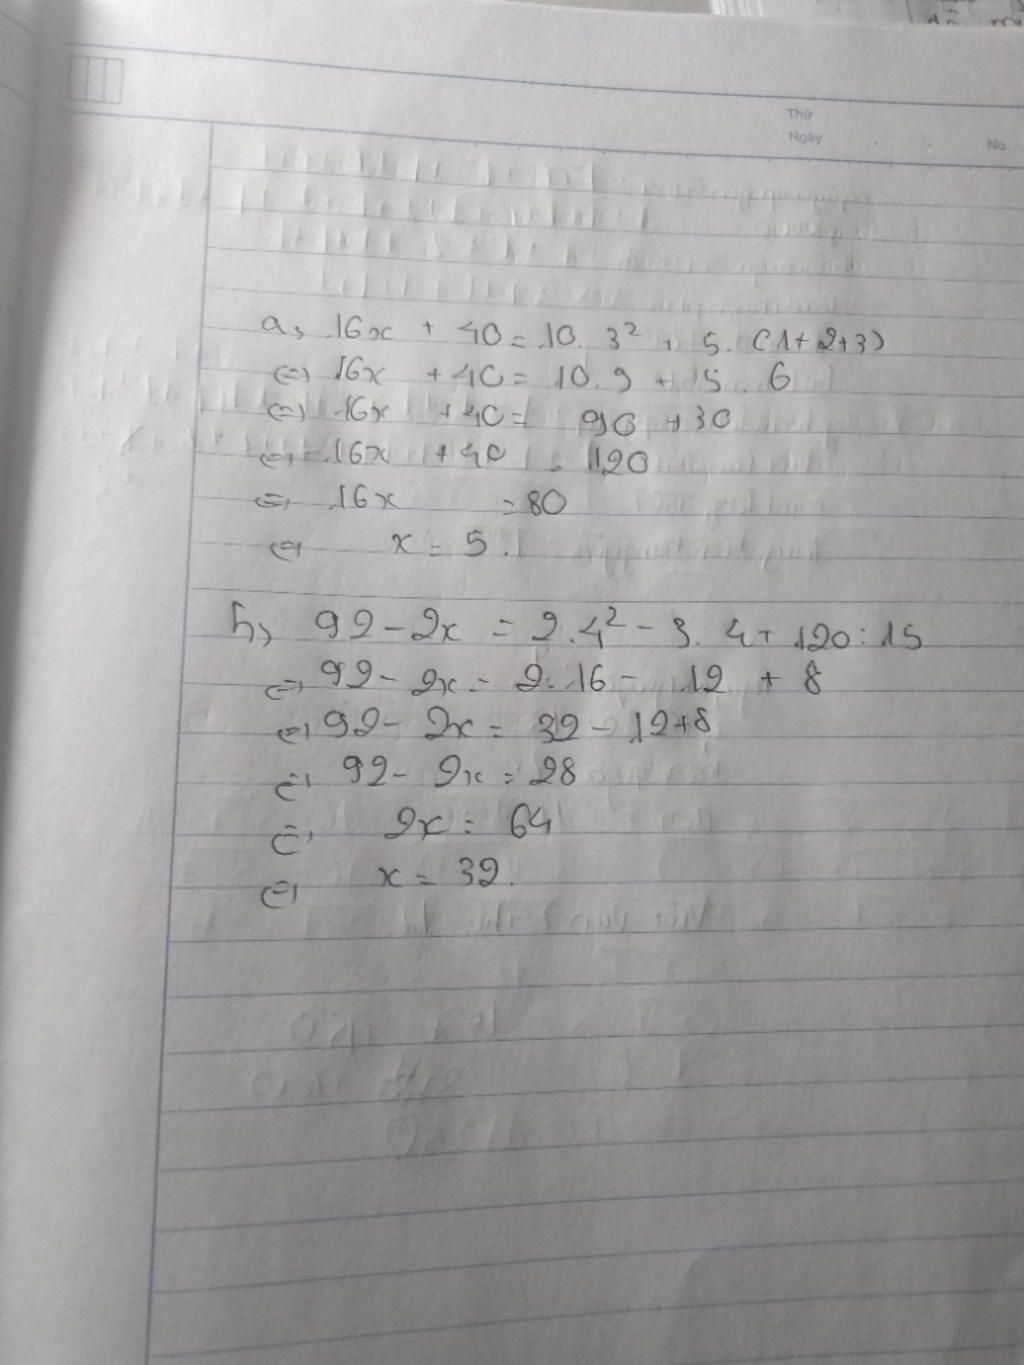 Thứ
Ngày
No
a, 16x + 40 = 10. 3² + 5. (1+2+3)
<=> 16x + 40 = 10. 9 + 5. 6
<=> 16x + 40 = 90 + 30
<=> 16x + 40 = 120
<=> 16x = 80
<=> x = 5.
b, 92 - 2x = 2.4² - 3. 4 + 120 : 15
<=> 92 - 2x = 2. 16 - 12 + 8
<=> 92 - 2x = 32 - 12+8
<=> 92 - 2x = 28
<=> 2x = 64
<=> x = 32.